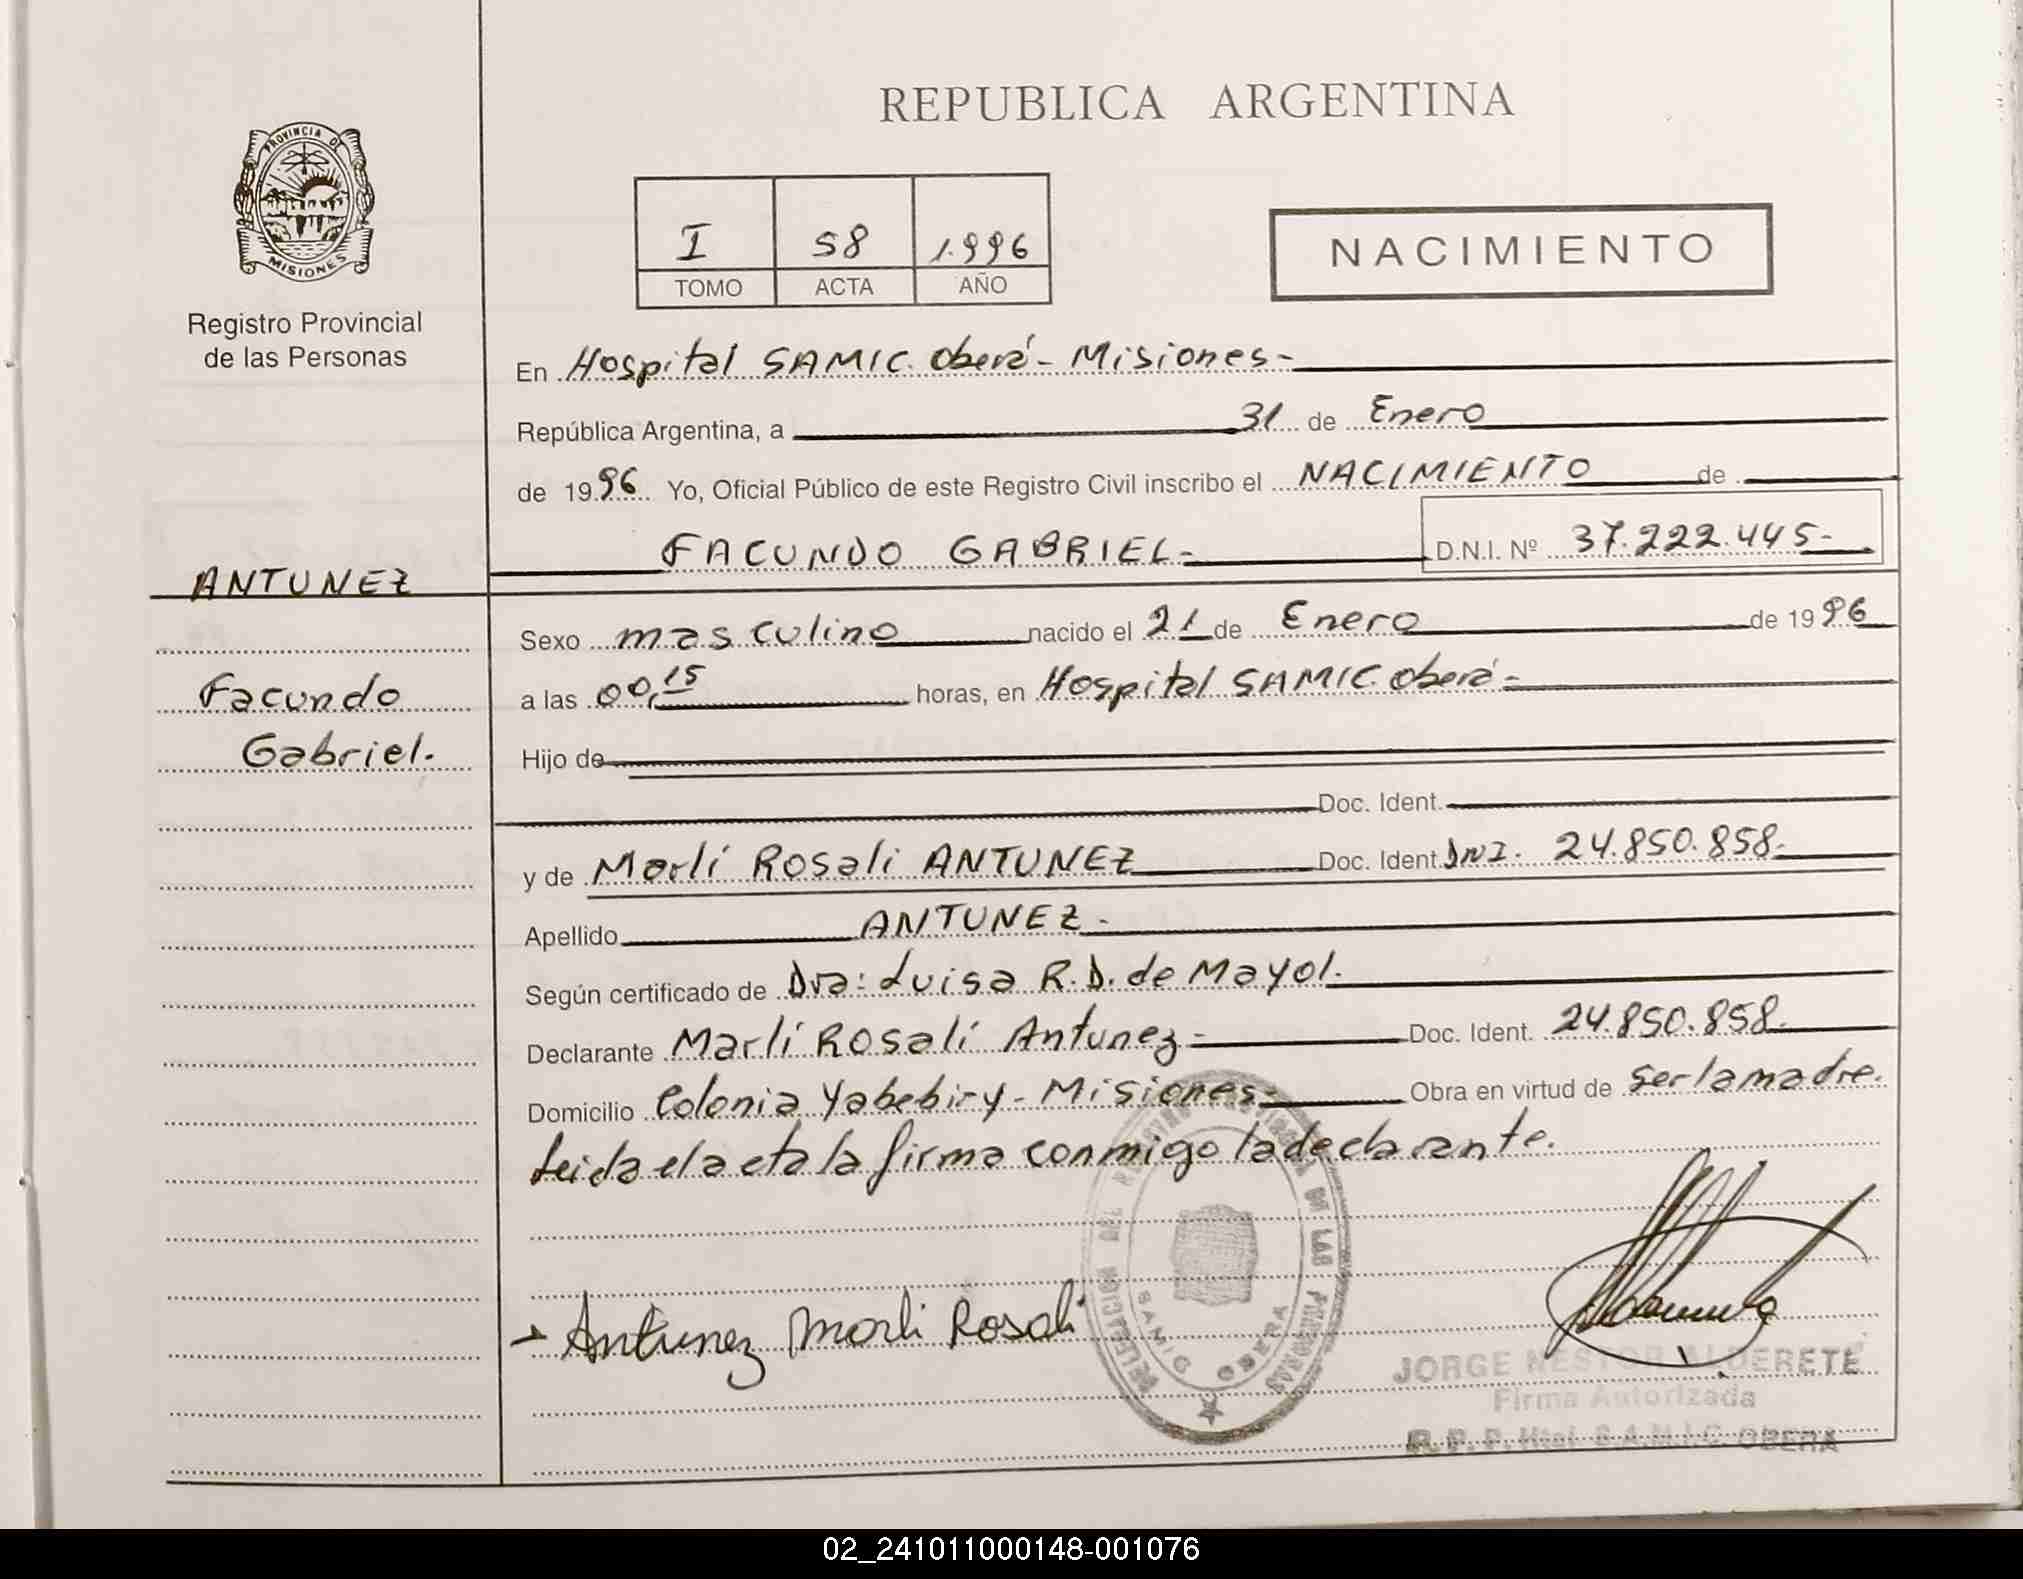 PROVINCIA DE
MISIONES
Registro Provincial
de las Personas
REPUBLICA ARGENTINA
I 58 1.996
TOMO ACTA AÑO
NACIMIENTO
En Hospital SAMIC. Oberá - Misiones -
República Argentina, a 31 de Enero
de 1996 Yo, Oficial Público de este Registro Civil inscribo el NACIMIENTO de
FACUNDO GABRIEL - D.N.I. Nº 37.222.445-
ANTUNEZ
Facundo
Gabriel.
Sexo masculino nacido el 21 de Enero de 1996
a las 00,15 horas, en Hospital SAMIC Oberá -
Hijo de
Doc. Ident.
y de Marlí Rosali ANTUNEZ Doc. Ident. DNI. 24.850.858-
Apellido ANTUNEZ -
Según certificado de Dra: Luisa R.D. de Mayol.
Declarante Marlí Rosalí Antunez - Doc. Ident. 24.850.858.
Domicilio Colonia Yabebiry - Misiones - Obra en virtud de ser la madre.
Leida el acta la firma conmigo la declarante.
DELEGACION DEL REGISTRO PROVINCIAL DE LAS PERSONAS
SAMIC OBERA
Antunez Marli Rosali
JORGE NESTOR ALDERETE
Firma Autorizada
R. P. P. Htal S.A.M.I.C. OBERA
02_241011000148-001076